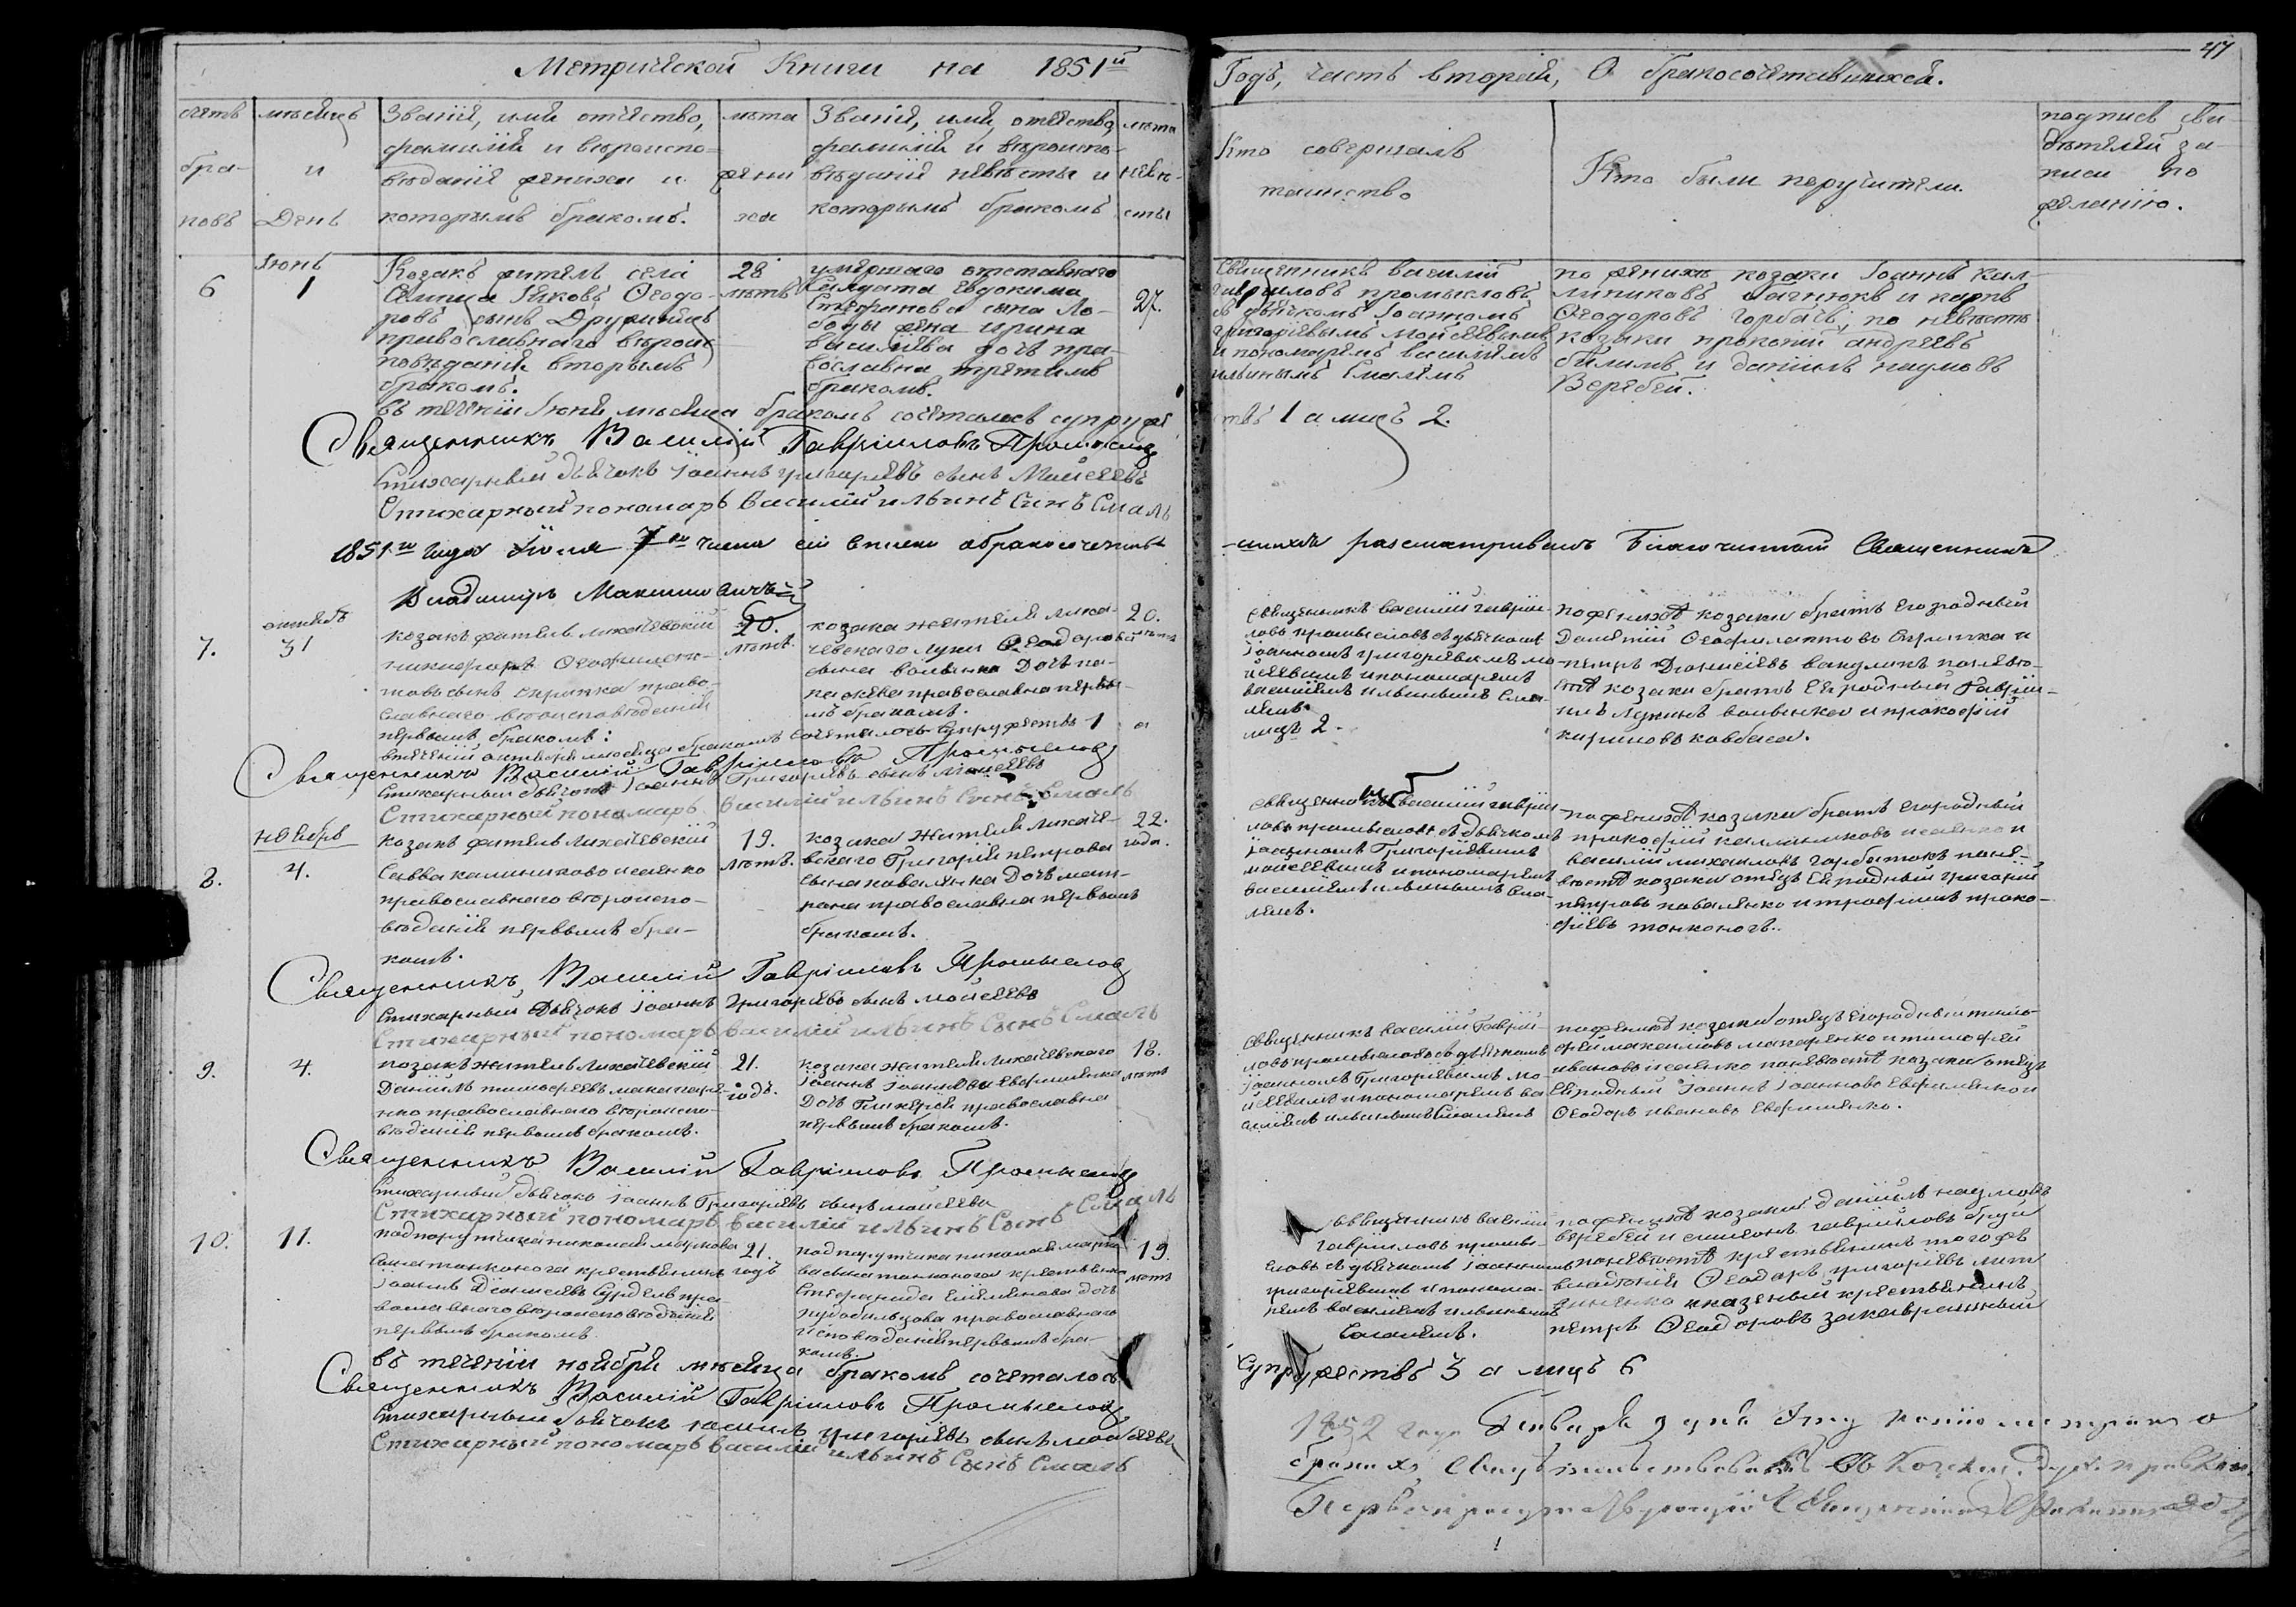 47
Метрической Книги на 1851й Годъ, часть вторая, О бракосочетавшихся.
счетъ браковъ
мѣсяцъ и День
Званіе, имя отчество,
фамилія и вѣроиспо-
вѣданіе жениха и
которымъ бракомъ.
лѣта жениха
Званіе, имя, отчество,
фамилія и вѣроиспо-
вѣданіе невѣсты и
которымъ бракомъ
лѣта невѣсты
Кто совершалъ
таинство
Кто были поручители.
подписъ сви-
дѣтелей за-
писи по
желанію.
6
Іюнь
1
Козакъ житель села
Яковъ Ѳеодо-
ровъ сынъ
православнаго вѣроис
повѣданія вторымъ
бракомъ.
28
лѣтъ
умершаго отставнаго
Салдата Евдокима
Стефанова сына Ло-
боды жена Ирина
василіева дочь пра-
вославна третимъ
бракомъ.
27.
Священникъ василій
гавріиловъ промысловъ
съ дьячкомъ Іоанномъ
григоріевымъ мойсеевымъ
и пономаремъ василіемъ
ильинымъ Смалемъ
по женихѣ козаки Іоаннъ кал-
линиковъ и карпъ
Ѳеодоровъ горбачь, по невѣстѣ
козаки прокопій андреевъ
білимъ и даніилъ наумовъ
Веребей.
въ теченіи Іюня мѣсяца бракомъ сочеталось супруже
ствъ 1 а лицъ 2.
Священникъ Василій Гавріиловъ Промыслов
Стихарный дьячокъ Іоаннъ григоріевъ сынъ Мойсеевъ
Стихарный пономарь Василій ильинъ Сынъ Смаль
1851го года Іюля 7го числа сіи списки о бракосочетав-
-шихся разсматривалъ Благочинный Священникъ
Владимиръ Максимовичъ
7.
октября
31
козакъ житель лихачевскій
никифоръ Ѳеофилак-
товъ сынъ скрипка право-
славнаго вѣроисповѣданія
первымъ бракомъ:
20.
лѣтъ.
козака жителя лиха-
чевскаго луки Ѳеодорова
сына волынка Дочь па-
раскева православна первы-
мъ бракомъ.
20.
лѣтъ
священникъ василій гаврііи-
ловъ промысловъ съ дьячкомъ
Іоанномъ григоріевымъ мо-
йсеевымъ и пономаремъ
василіемъ ильинымъ Сма-
лемъ.
по женихѣ козаки братъ его родный
Дометій Ѳеофилактовъ скрипка и
петръ Діонисіевъ вакуликъ по невѣ-
стѣ козаки братъ Ея родный Гаврі-
илъ лукинъ волынка и прокофій
кириловъ ковбаса.
в теченіи октября мѣсяца бракомъ сочеталось Супружествъ 1 а
лицъ 2.
Священникъ Василій Гавріиловъ Промыслов
Стихарный дьячокъ Іоаннъ Григоріевъ сынъ Мойсеевъ
Стихарный пономарь Василій ильинъ Сынъ Смаль
8.
ноября
4.
козакъ житель лихачевскій
Савва калиниковъ исаенко
православнаго вѣроиспо-
вѣданія первымъ бра-
комъ.
19.
лѣтъ.
козака жителя лихаче-
вскаго Григорія петрова
сына коваленка Дочь мат-
рона православна первымъ
бракомъ.
22.
года.
священникъ василій гавріи-
ловъ промысловъ съ дьячкомъ
Іоанномъ Григоріевымъ
мойсеевымъ и пономаремъ
василіемъ ильинымъ Сма-
лемъ.
по женихѣ козаки братъ его родный
прокофій каллиниковъ исаенко и
василій михаиловъ горбатокъ по не-
вѣстѣ козаки отецъ Ея родный григорій
петровъ коваленко и трофимъ проко-
фіевъ тонконогъ.
Священникъ, Василій Гавріиловъ Промыслов
Стихарный Дьячокъ Іоаннъ Григоріевъ сынъ мойсеевъ
Стихарный пономарь Василій ильинъ Сынъ Смаль
9.
4.
козакъ житель лихачевскій
Даніилъ тимофеевъ макаре-
нко православнаго вѣроиспо-
вѣданія первымъ бракомъ.
21.
годъ.
козака жителя лихачевскаго
Іоанна Іоаннова Евфименка
Дочь Гликерія православна
первымъ бракомъ.
18.
лѣтъ
священникъ василій Гавріи-
ловъ промысловъ съ дьячкомъ
Іоанномъ Григоріевымъ мо-
йсеевымъ и пономаремъ ва-
силіемъ ильинымъ Смалемъ
по женихѣ козаки отецъ его родный тимо-
фей макаренко и тимофей
ивановъ исаенко по невѣстѣ козаки отецъ
Ея родный Іоаннъ Іоанновъ Евфименко и
Ѳеодоръ ивановъ Евфименко.
Священникъ Василій Гавріиловъ Промыслов
Стихарный дьячокъ Іоаннъ Григоріевъ сынъ мойсеевъ
Стихарный пономарь василій ильинъ Сынъ Смаль
10.
11.
подпорутчика николая маркова
сына тонконога крестьянинъ
Іоаннъ Діонисіевъ пра-
вославнаго вѣроисповѣданія
первымъ бракомъ
21.
годъ
подпорутчика николая марко
ва сына тонконога крестьянка
Стефанида Дочь
православнаго
исповѣданія первымъ бра-
комъ.
19.
лѣтъ
священникъ василій
гавріиловъ промы-
словъ съ дьячкомъ Іоанномъ
григоріевымъ и понома-
ремъ василіемъ ильинымъ
Смалемъ.
по женихѣ козаки даніилъ наумовъ
веребей и симеонъ гавріиловъ
по невѣстѣ крестьянинъ того же
владѣнія Ѳеодоръ григоріевъ лит
виненко и казеный крестьянинъ
петръ Ѳеодоровъ
въ теченіи ноября мѣсяца бракомъ сочеталось
Супружествъ 3 а лицъ 6
Священникъ Василій Гавріиловъ Промыслов
Стихарный дьячокъ іоаннъ григоріевъ сынъ мойсеевъ
Стихарный пономарь василій ильинъ Сынъ Смаль
1852 года Генваря 9 дня Сию копію метрики о
бракахъ